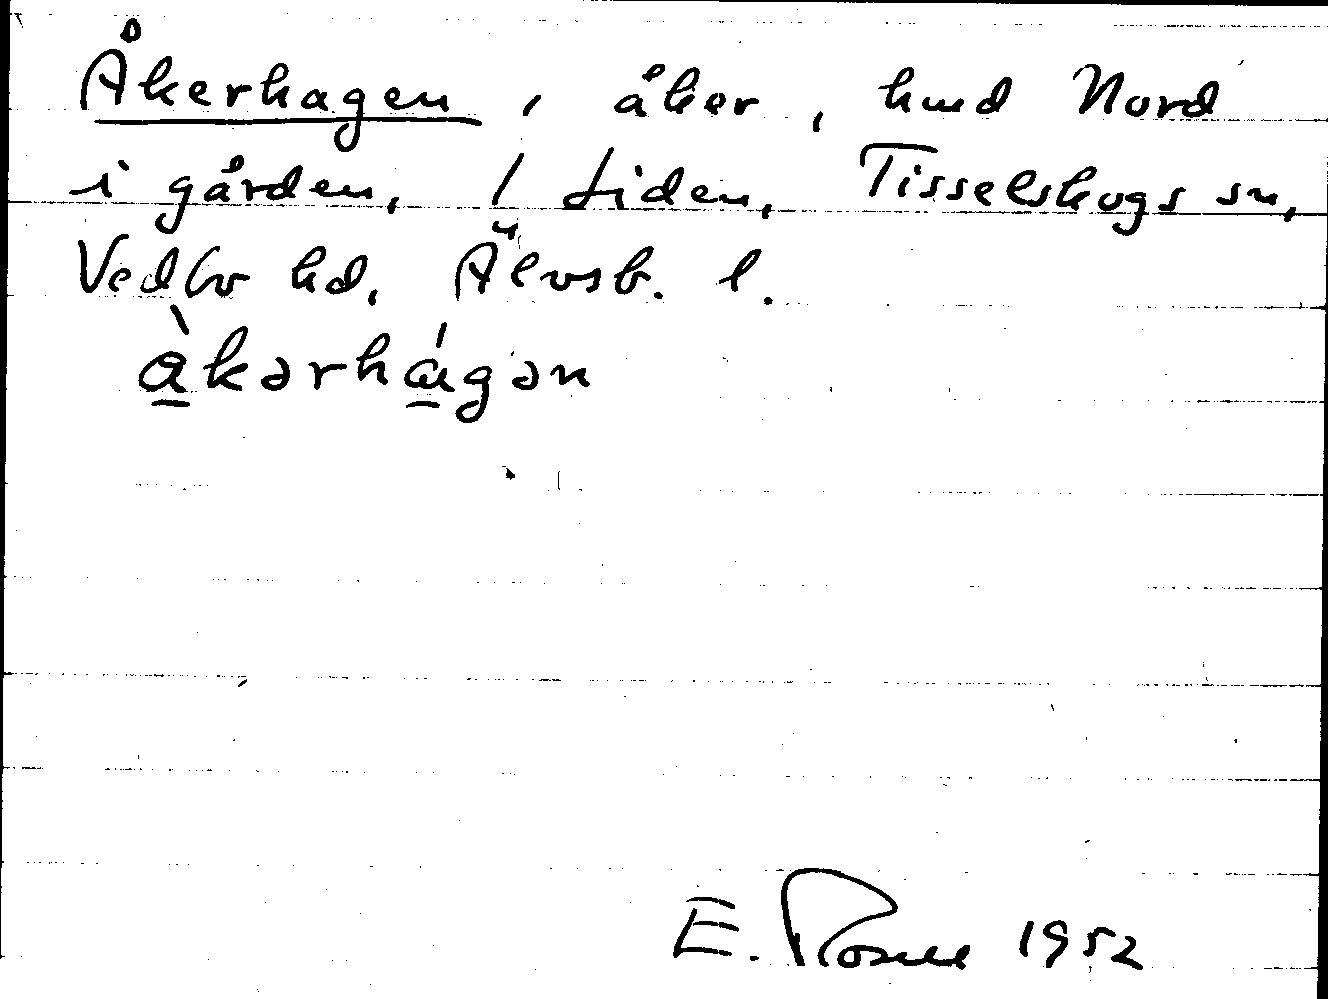 Åkerhagen, åker, hmd Nord
i gården, 1 Liden, Tisselskogs sn,
Vedbo hd, Älvsb. l.
àkərhágən
E. Rosell 1952